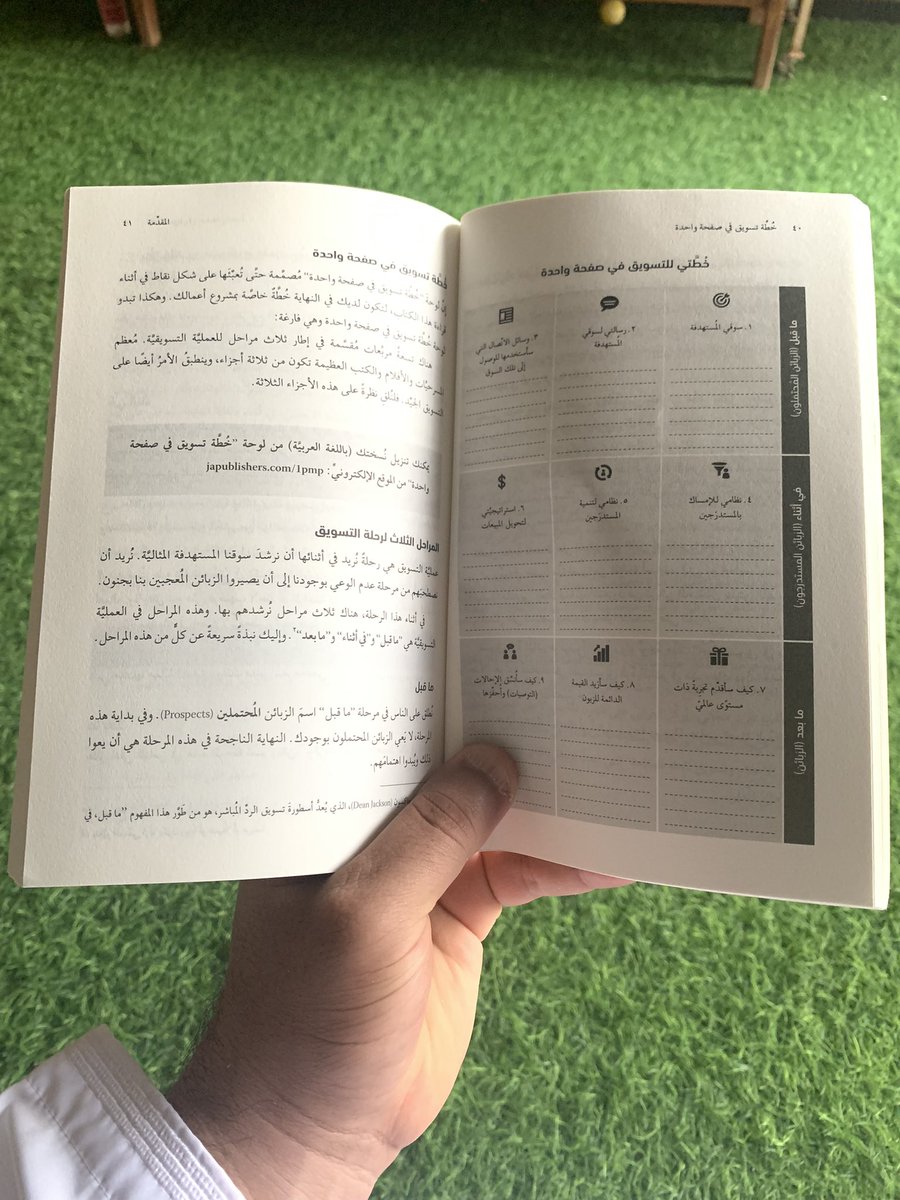 ٤٠ خُطَّة تسويق في صفحة واحدة
خُطَّتي للتسويق في صفحة واحدة
ما قبل (الزبائن المُحتملون)
١. سوقي المُستهدفة
٢. رسالتي لسوقي
المُستهدفة
٣. وسائل الاتّصال التي
سأستخدمها للوصول
إلى تلك السوق
في أثناء (الزبائن المستدرجون)
٤. نظامي للإمساك
بالمستدرَجين
٥. نظامي لتنمية
المستدرَجين
٦. استراتيجيَّتي
لتحويل المبيعات
ما بعد (الزبائن)
٧. كيف سأقدّم تجربةً ذات
مستوًى عالميّ
٨. كيف سأزيد القيمة
الدائمة للزبون
٩. كيف سأنسِّق للإحالات
(التوصيات) وأُحفِّزها
المقدِّمة ٤١
خُطَّة تسويق في صفحة واحدة
إنَّ لوحة "خُطَّة تسويق في صفحة واحدة" مُصمَّمة حتَّى تُعبِّئها على شكل نقاط في أثناء
قراءة هذا الكتاب، لتكون لديك في النهاية خُطَّةٌ خاصَّة بمشروع أعمالك. وهكذا تبدو
لوحة خُطَّة تسويق في صفحة واحدة وهي فارغة:
هناك تسعة مربَّعات مُقسَّمة في إطار ثلاث مراحل للعمليَّة التسويقيَّة. مُعظم
المسرحيَّات والأفلام والكتب العظيمة تكون من ثلاثة أجزاء، وينطبقُ الأمرُ أيضًا على
التسويق الجيّد. فلنُلقِ نظرةً على هذه الأجزاء الثلاثة.
يمكنك تنزيل نُسختك (باللغة العربيَّة) من لوحة "خُطَّة تسويق في صفحة
واحدة" من الموقع الإلكترونيِّ: japublishers.com/1pmp
المراحل الثلاث لرحلة التسويق
عمليَّة التسويق هي رحلةٌ نُريد في أثنائها أن نرشدَ سوقنا المستهدفة المثاليَّة. نُريد أن
نصطحبَهم من مرحلة عدم الوعي بوجودنا إلى أن يصيروا الزبائن المُعجبين بنا بجنون.
في أثناء هذا الرحلة، هناك ثلاث مراحل نُرشدهم بها. وهذه المراحل في العمليَّة
التسويقيَّة هي "ما قبل" و"في أثناء" و"ما بعد"٢. وإليك نبذةً سريعةً عن كلٍّ من هذه المراحل.
ما قبل
نُطلق على الناس في مرحلة "ما قبل" اسمَ الزبائن المُحتملين (Prospects). وفي بداية هذه
المرحلة، لا يَعي الزبائن المحتملون بوجودك. النهاية الناجحة في هذه المرحلة هي أن يعوا
ذلك ويُبدوا اهتمامَهم.
(Dean Jackson)، الذي يُعدُّ أسطورةَ تسويق الردّ المُباشر، هو من طوَّر هذا المفهوم "ما قبل، في